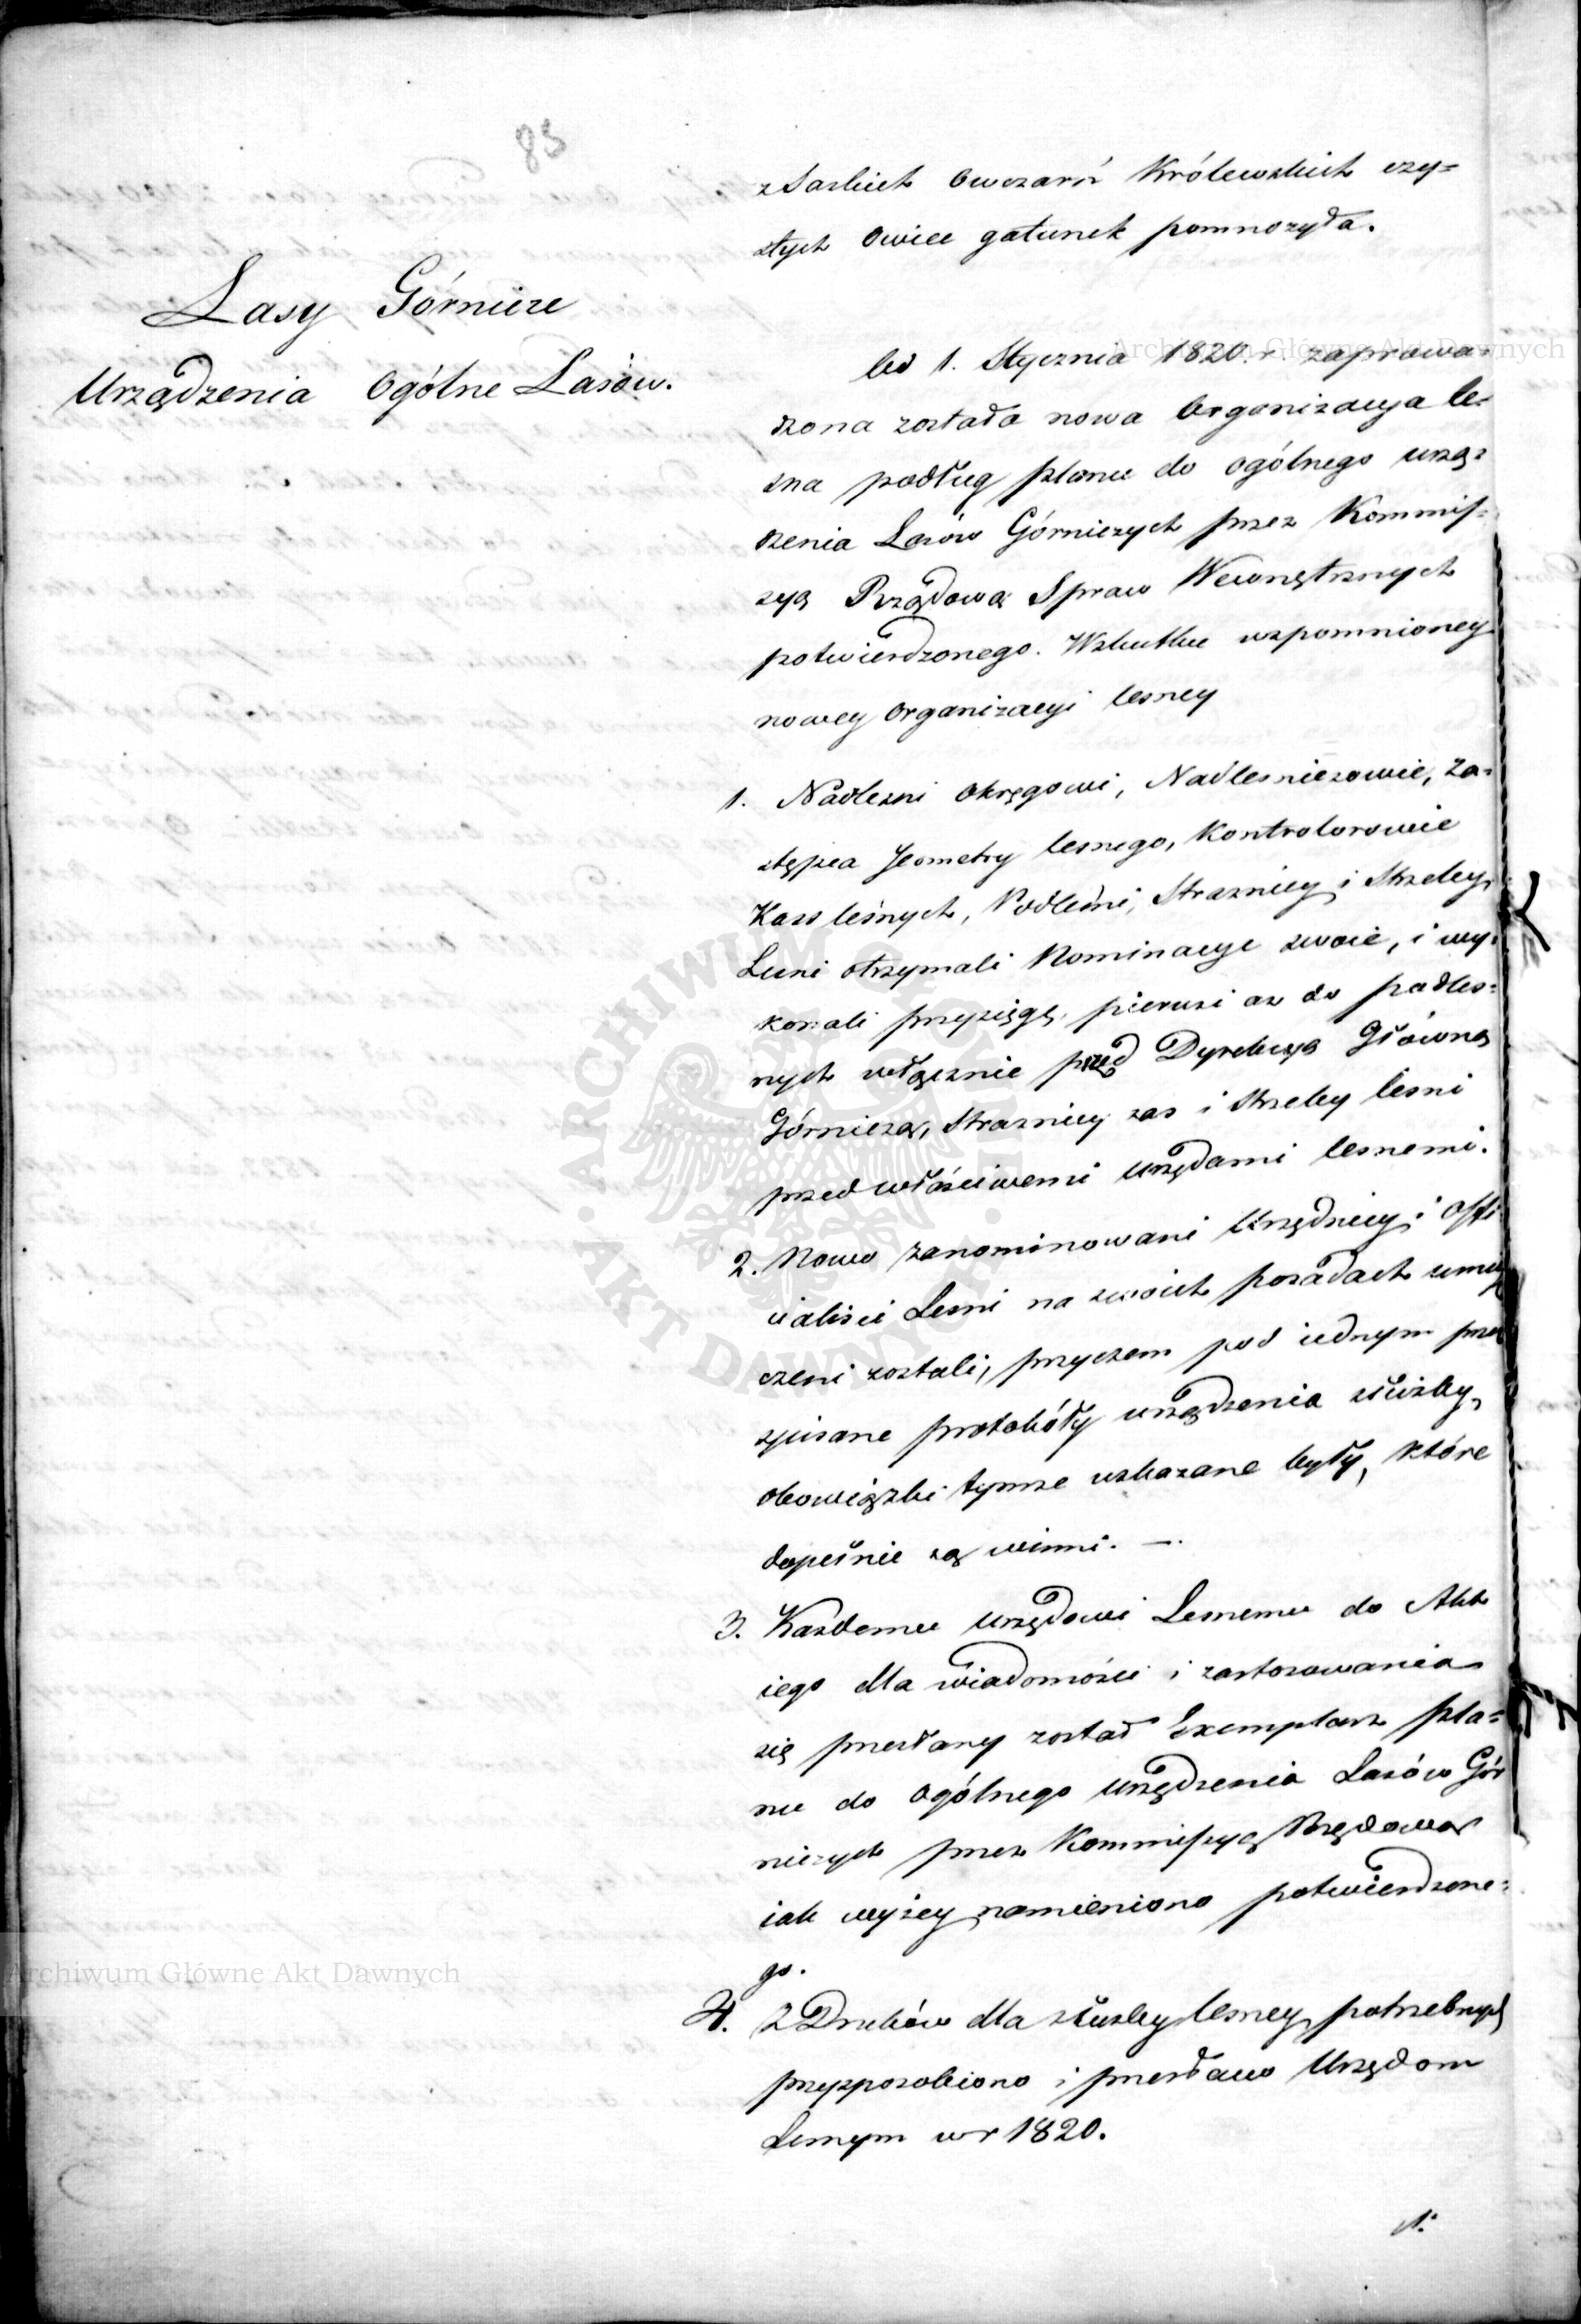 83
z Saskich Owczarń Królewskich czy=
stych Owiec gatunek pomnożyła.
Lasy Górnicze
Urządzenia Ogólne Lasów.
Od 1. Stycznia 1820. r. zaprowa=
dzona została nowa Organizacya le=
sna podług planu do ogólnego urzą=
dzenia Lasów Górniczych przez Kommis=
syą Rządową Spraw Wewnętrznych
potwierdzonego. Wskutku wspomnioney
nowey Organizacyi lesney
1. Nadlesni Okręgowi, Nadlesniczowie, Za=
stępca Jeometry lesnego, Kontrolorowie
Kass leśnych, Podleśni, Straznicy i Strzelcy
Lesni otrzymali Nominacye swoie, i wy=
konali przysięgę, pierwsi az do podles=
nych włącznie przed Dyrekcyą Główną
Górniczą, Straznicy zas i Strzelcy lesni
przed właściwemi urzędami lesnemi.
2. Nowo zanominowani Urzędnicy i Offi
cialisci Lesni na swoich posadach umie
szczeni zostali, przyczem pod iednym przez
spisane protokóły urządzenia służby,
obowiązki tymze wskazane były, które
dopełnić są winni. —.
3. Każdemu urzędowi Lesnemu do Akt
iego dla wiadomości i zastosowania
się przesłany został Exemplarz pla=
nu do ogólnego urządzenia Lasów Gór
niczych przez Kommissyą Rządową
iak wyżey namieniono potwierdzone=
go.
4. Z Druków dla służby lesney potrzebnych
przysposobiono i przesłano Urzędom
Lesnym w r 1820.
Archiwum Główne Akt Dawnych
Archiwum Główne Akt Dawnych
ARCHIWUM GŁÓWNE AKT DAWNYCH